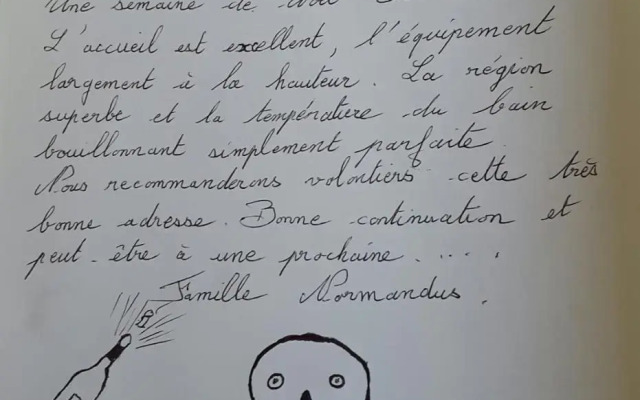 Une semaine de
L'accueil est excellent, l'équipement
largement à la hauteur. La région
superbe et la température du bain
bouillonnant simplement parfaite.
Nous recommanderons volontiers cette très
bonne adresse. Bonne continuation et
peut-être à une prochaine.....
Famille Normandus.